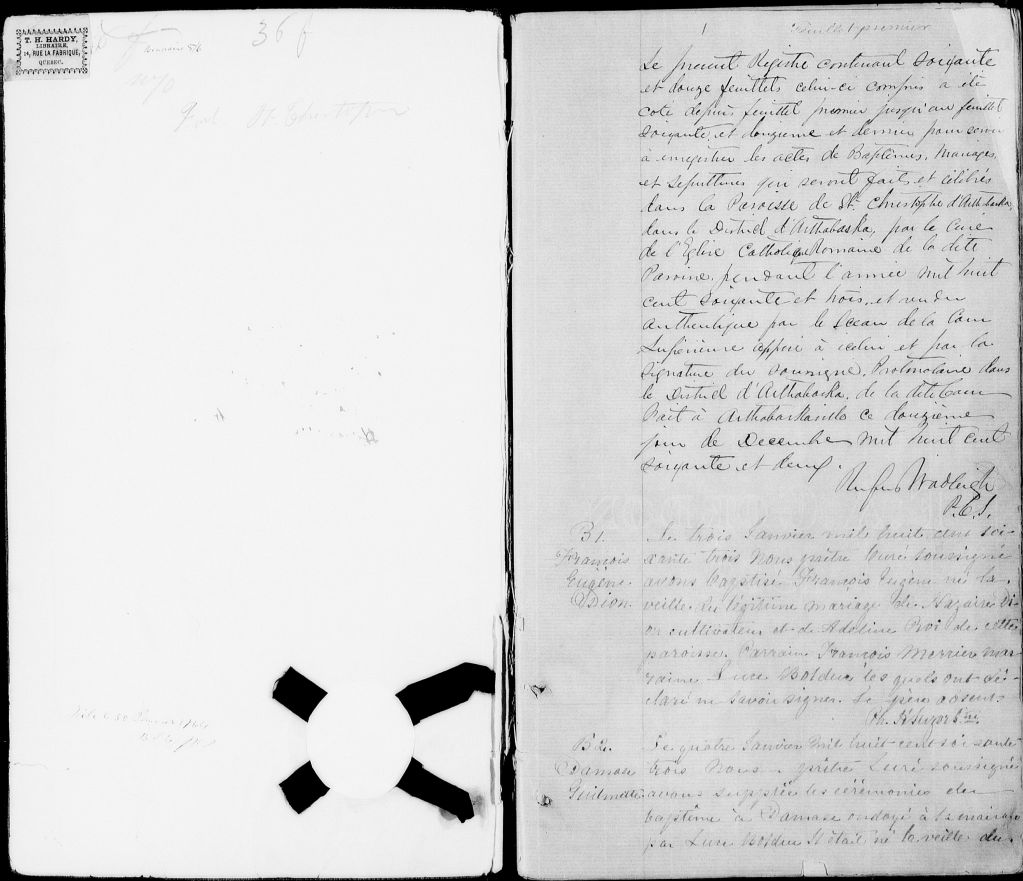 T. H. HARDY,
LIBRAIRE,
RUE LA FABRIQUE,
QUEBEC.
36 f
1 Feuillet premier
Le present Registre contenant soixante
et douze feuillets celui-ci compris a été
coté depuis feuillet premier jusqu'au feuillet
soixante et douzieme et dernier pour servir
à enregistrer les actes de Baptêmes, Mariages,
et sepultures qui seront faits et célébrés
dans la Paroisse de St. Christophe d'Arthabaska,
dans le District d'Arthabaska, par le Curé
de l'Eglise Catholique Romaine de la dite
Paroisse, pendant l'année mil huit
cent soixante et trois, et rendu
authentique par le Sceau de la Cour
Supérieure apposé à icelui et par la
signature du soussigné, Protonotaire dans
le District d'Arthabaska, de la dite Cour
Fait à Arthabaskaville ce douzième
jour de Decembre mil huit cent
soixante et deux.
Rufus Wadleigh
P.C.S.
B 1.
François
Eugène
Dion.
Le trois Janvier mil huit cent soi-
xante trois Nous prêtre Curé soussigné
avons baptisé François Eugène né la
veille du légitime mariage de Nazaire Di-
on cultivateur et de Adeline Roi de cette
paroisse. Parrain François Mercier mar-
raine Luce Bolduc les quels ont dé-
claré ne savoir signer. Le père absent.
Ph. H. Suzor Ptre
B 2.
Damase
Guilmette
Le quatre Janvier mil huit cent soixante
trois Nous prêtre Curé soussigné
avons suppléé les cérémonies du
baptême à Damase ondoyé à la maison
par Luce Bolduc Il était né la veille du